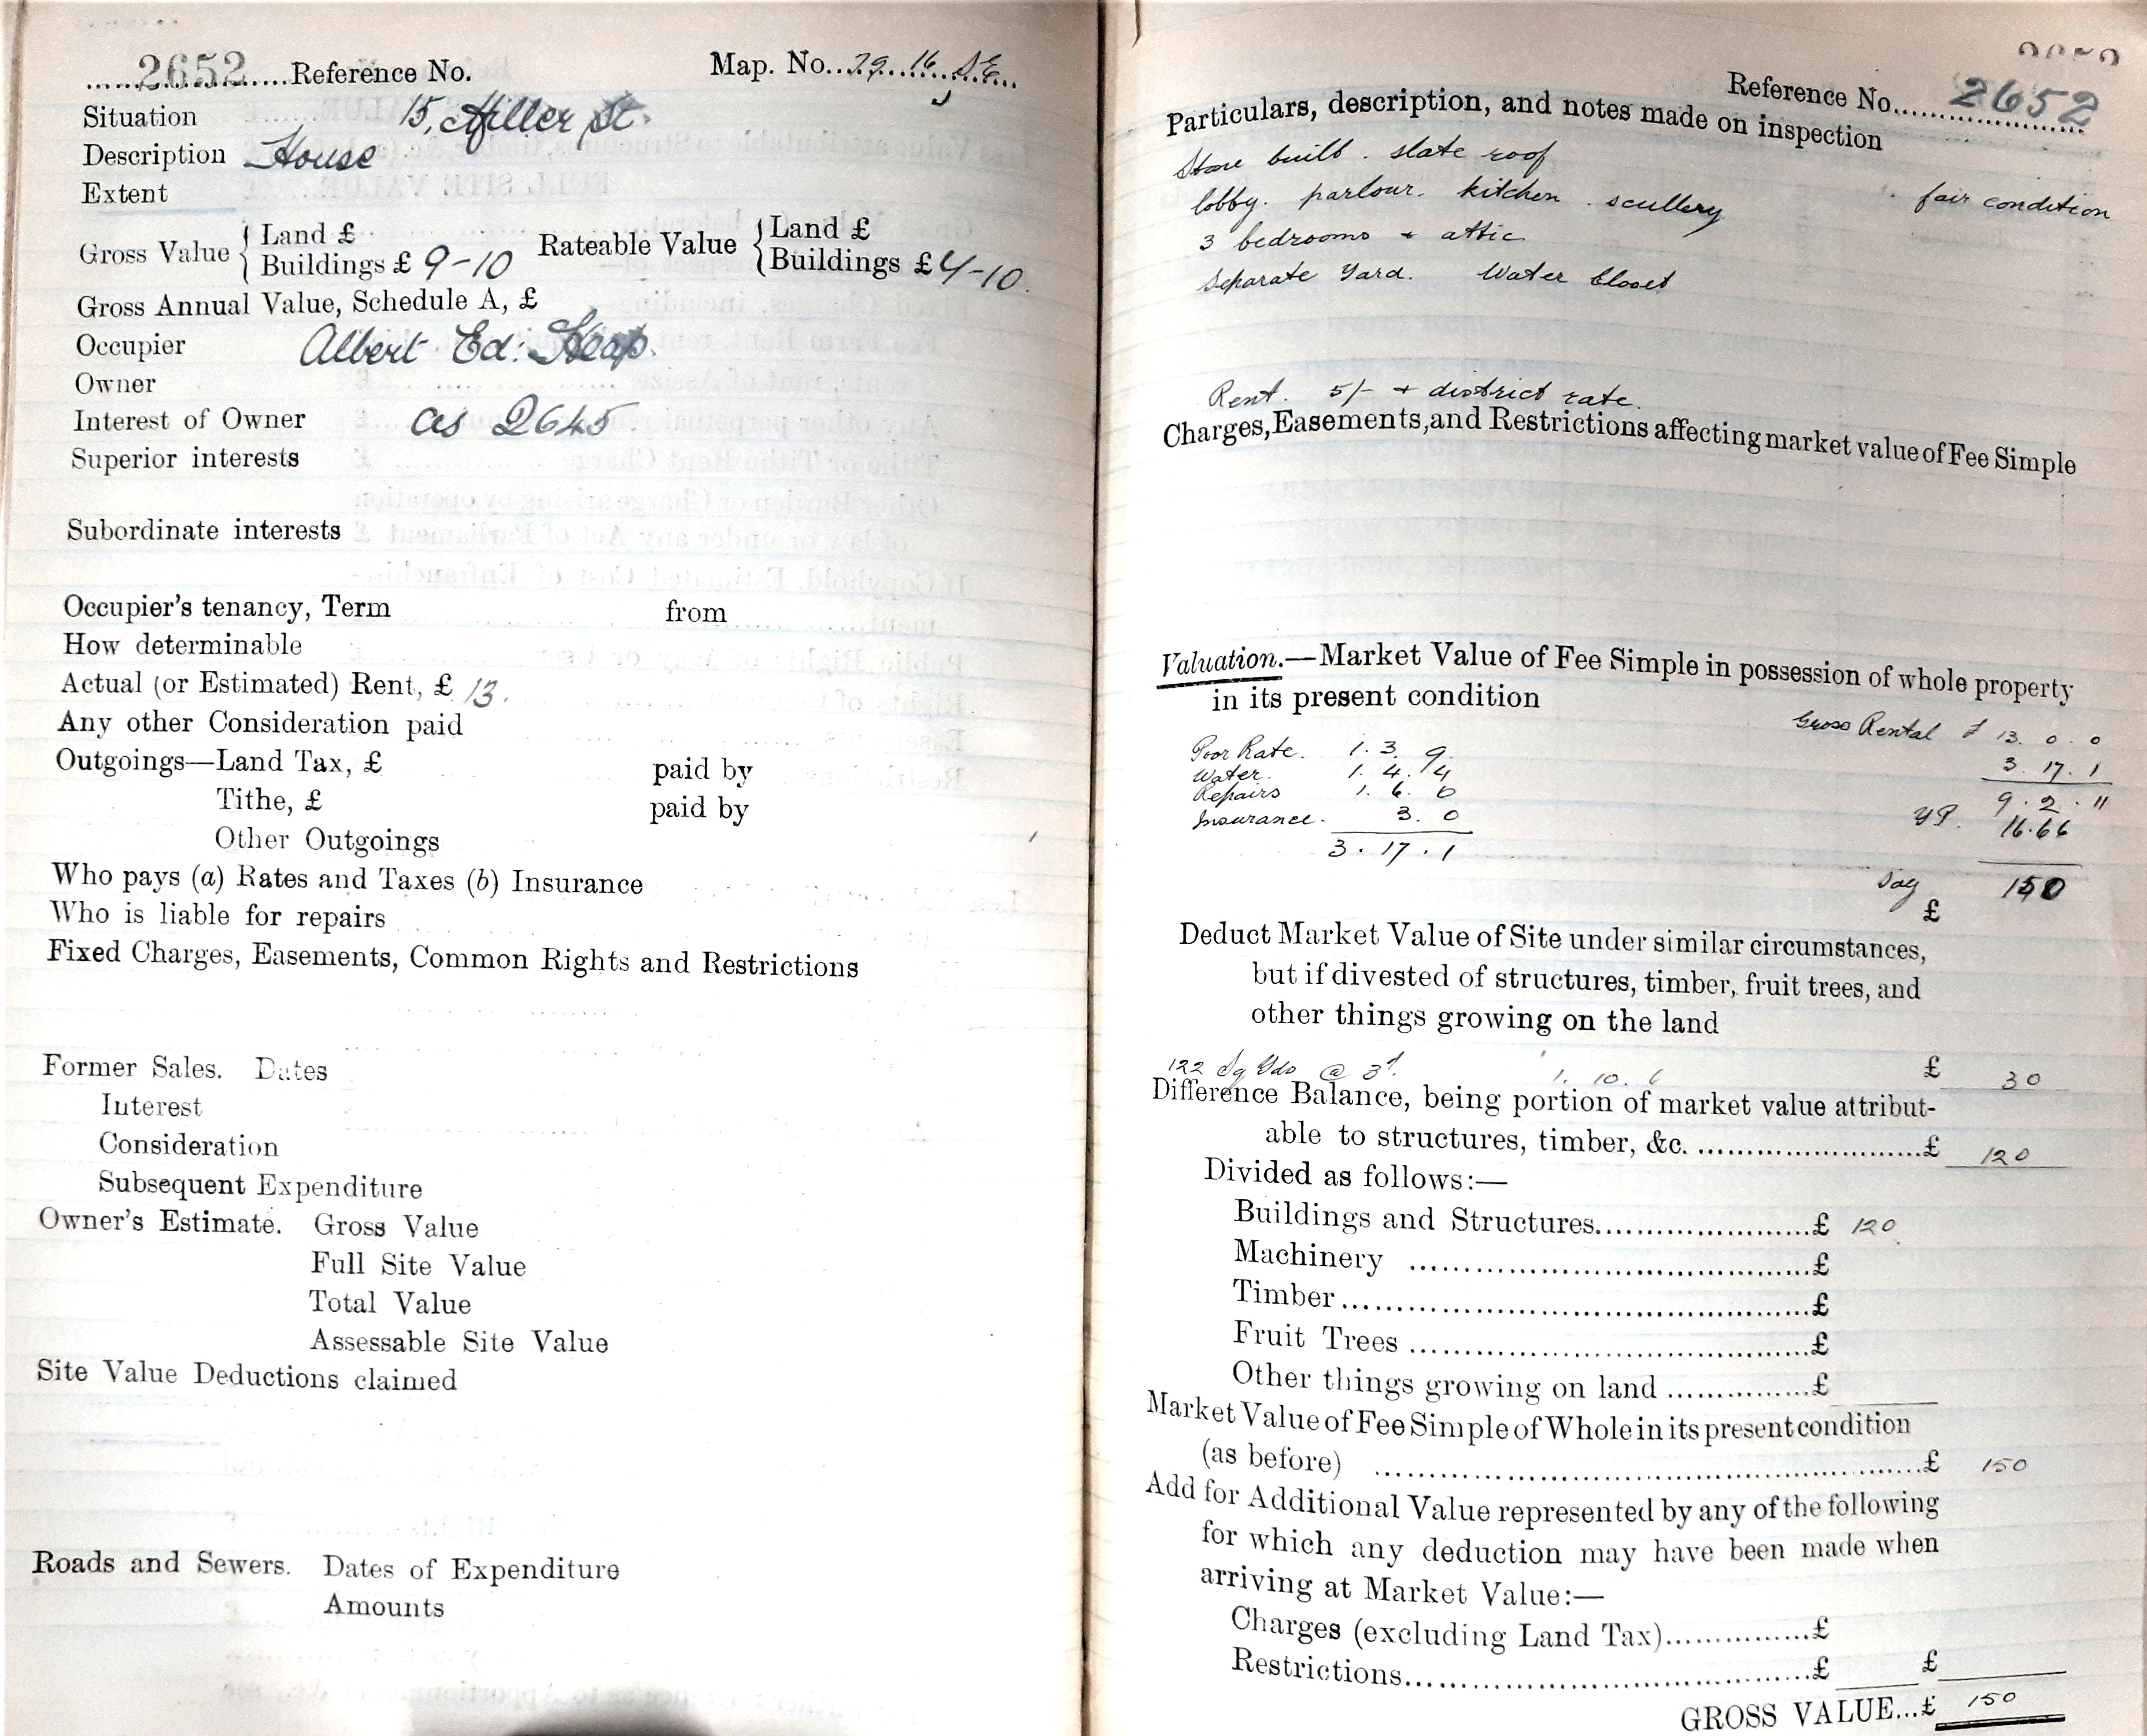 2652 Reference No. Map. No. 79. 16. S.E.
Situation 15, Miller St.
Description House
Extent
Gross Value { Land £ Rateable Value { Land £
Buildings £ 9-10 Buildings £ 4-10.
Gross Annual Value, Schedule A, £
Occupier Albert Ed: Heap.
Owner
Interest of Owner as 2645
Superior interests
Subordinate interests
Occupier's tenancy, Term from
How determinable
Actual (or Estimated) Rent, £ 13.
Any other Consideration paid
Outgoings—Land Tax, £ paid by
Tithe, £ paid by
Other Outgoings
Who pays (a) Rates and Taxes (b) Insurance
Who is liable for repairs
Fixed Charges, Easements, Common Rights and Restrictions
Former Sales. Dates
Interest
Consideration
Subsequent Expenditure
Owner's Estimate. Gross Value
Full Site Value
Total Value
Assessable Site Value
Site Value Deductions claimed
Roads and Sewers. Dates of Expenditure
Amounts
Reference No. 2652
Particulars, description, and notes made on inspection
Stone built. slate roof
lobby. parlour. kitchen. scullery fair condition
3 bedrooms + attic
Separate Yard. Water Closet
Rent. 5/- + district rate.
Charges, Easements, and Restrictions affecting market value of Fee Simple
Valuation.—Market Value of Fee Simple in possession of whole property
in its present condition
Gross Rental £ 13. 0. 0
Poor Rate. 1. 3. 9. 3. 17. 1
Water. 1. 4. 4
Repairs 1. 6. 0 9. 2. 11
Insurance. 3. 0 YP. 16.66
3. 17. 1
Say £ 150
Deduct Market Value of Site under similar circumstances,
but if divested of structures, timber, fruit trees, and
other things growing on the land
122 Sq Yds @ 3d. 1. 10. 6 £ 30
Difference Balance, being portion of market value attribut-
able to structures, timber, &c. £ 120
Divided as follows:—
Buildings and Structures £ 120
Machinery £
Timber £
Fruit Trees £
Other things growing on land £
Market Value of Fee Simple of Whole in its present condition
(as before) £ 150
Add for Additional Value represented by any of the following
for which any deduction may have been made when
arriving at Market Value:—
Charges (excluding Land Tax) £
Restrictions £ £
GROSS VALUE...£ 150